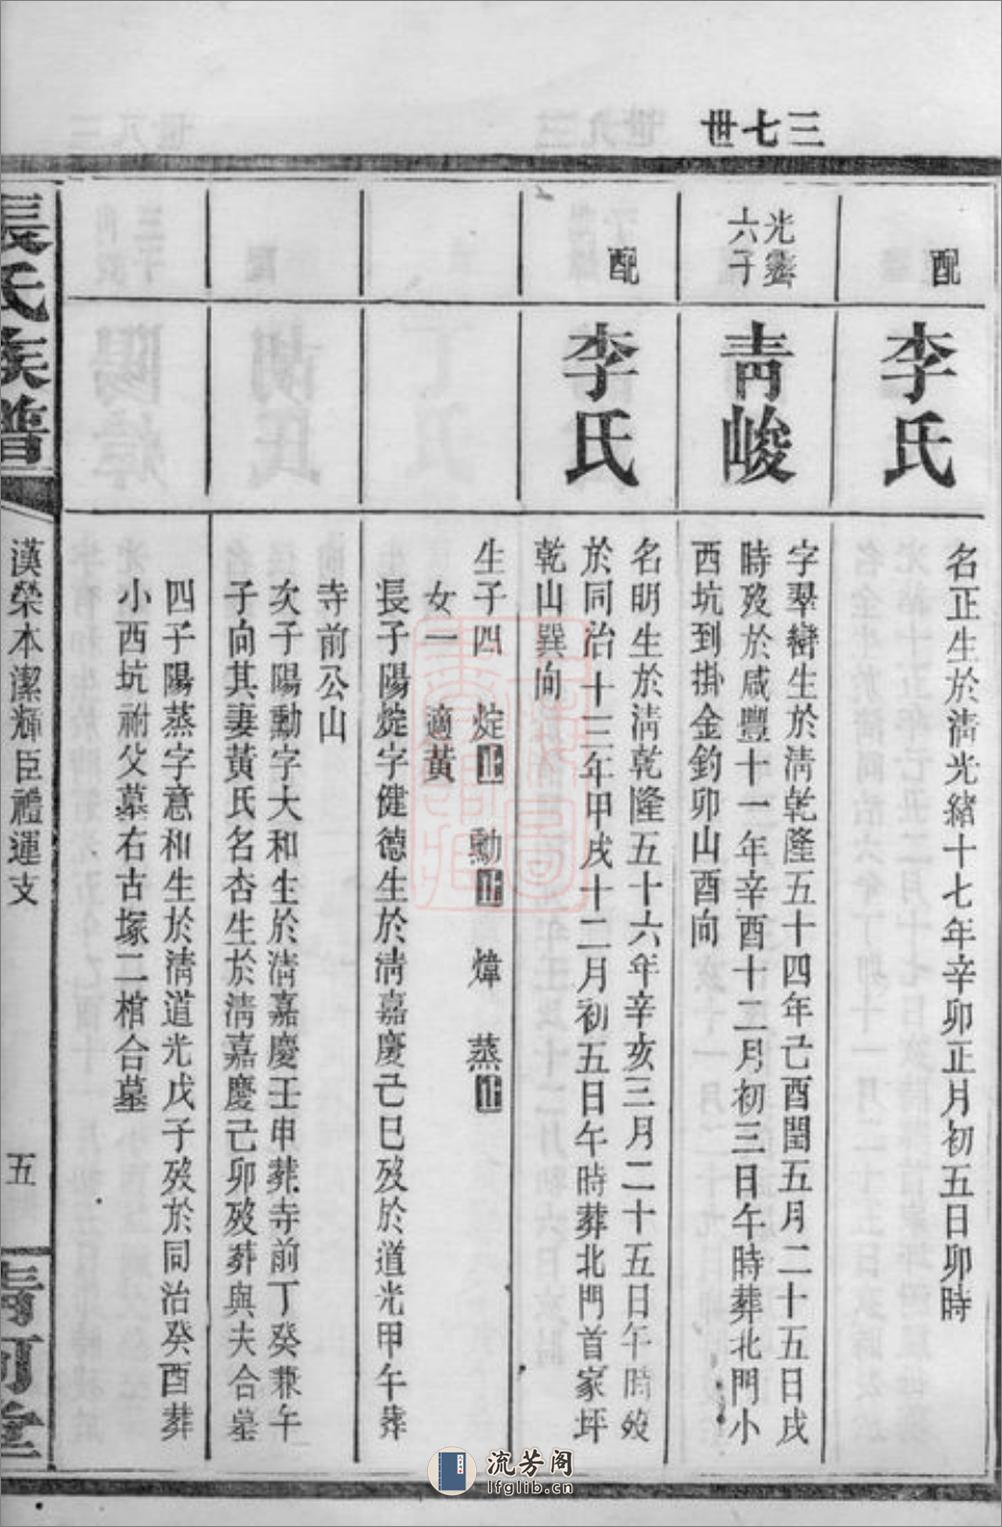 三七世
配
李氏
名正生於清光緒十七年辛卯正月初五日卯時
光霽
六子
青峻
字羣巒生於清乾隆五十四年己酉閏五月二十五日戌
時歿於咸豐十一年辛酉十二月初三日午時葬北門小
西坑到掛金鈎卯山酉向
配
李氏
名明生於清乾隆五十六年辛亥三月二十五日午時歿
於同治十三年甲戌十二月初五日午時葬北門首家坪
乾山巽向
生子四 烶止 勳止 煒 蒸止
女一 適黃
長子陽烶字健德生於清嘉慶己巳歿於道光甲午葬
寺前公山
次子陽勳字大和生於清嘉慶壬申葬寺前丁癸兼午
子向其妻黃氏名杏生於清嘉慶己卯歿葬與夫合墓
四子陽蒸字意和生於清道光戊子歿於同治癸酉葬
小西坑祔父墓右古塚二棺合墓
張氏族譜
漢榮本潔輝臣禮運支
五
清河堂
流芳阁
lfglib.cn